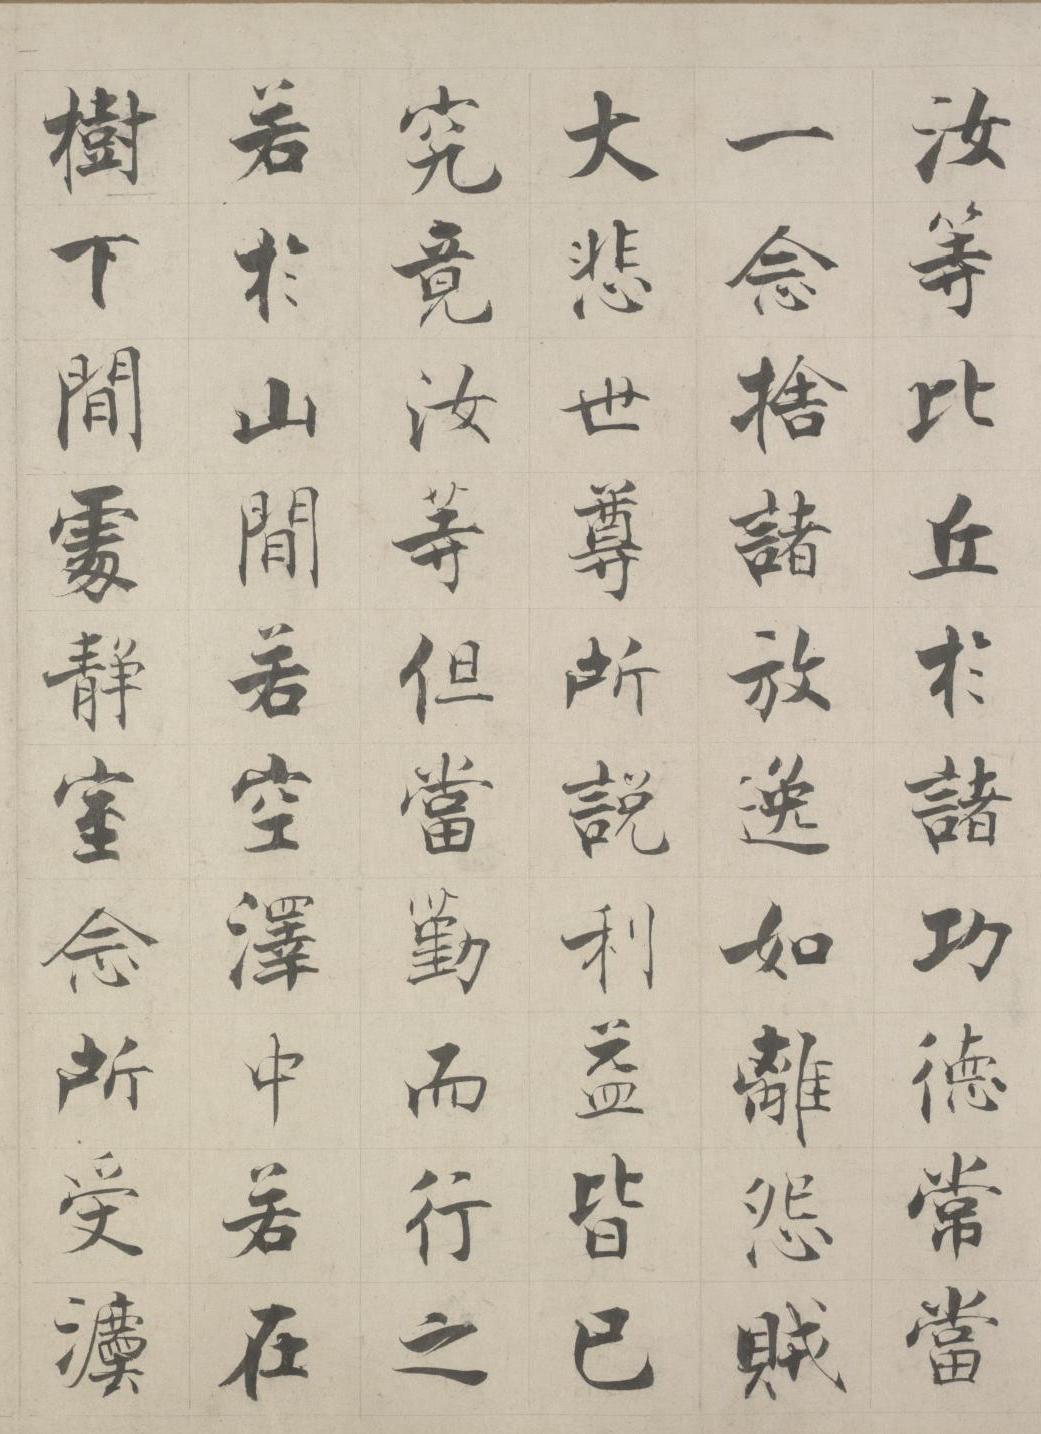 汝等比丘於諸功德常當
一念捨諸放逸如離怨賊
大悲世尊所說利益皆已
究竟汝等但當勤而行之
若於山間若空澤中若在
樹下閒處靜室念所受灋